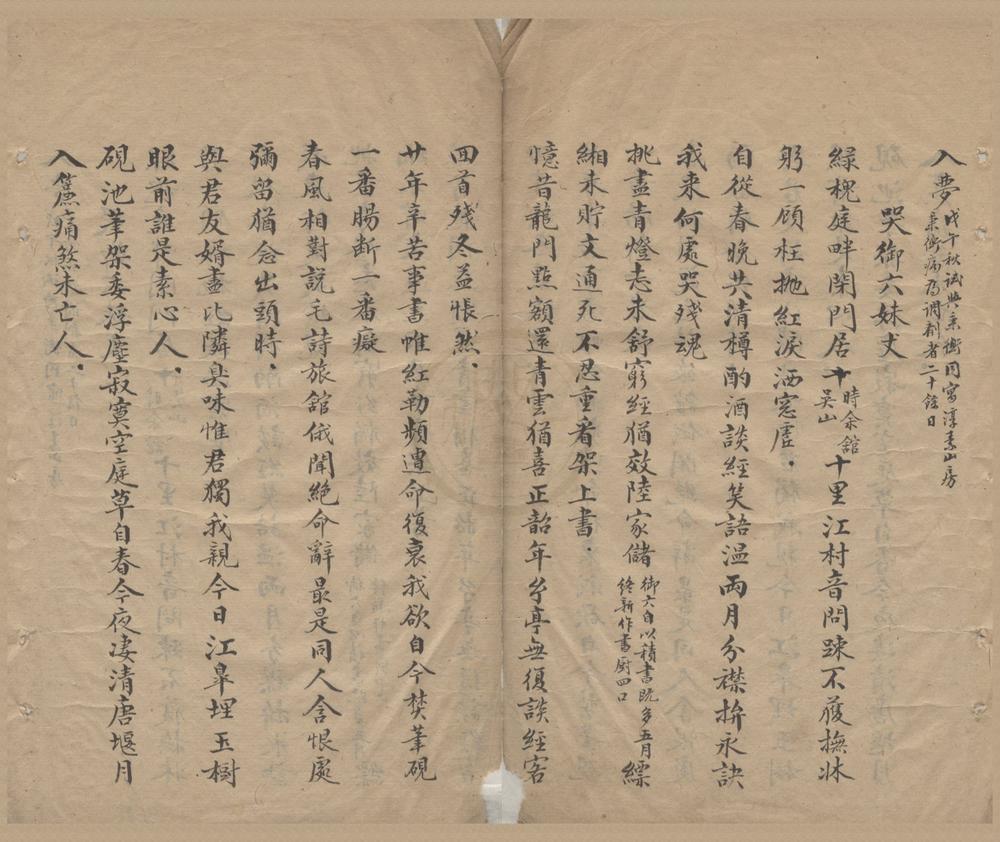 入夢戊午秋試與秉衡同寓淳素山房
秉衡病為調劑者二十餘日
哭御六妹丈
綠槐庭畔閉門居時余館吳山十里江村音問踈不獲撫牀
躬一顧枉拋紅淚洒窓虛
自從春晚共清樽酌酒談經笑語溫兩月分襟拚永訣
我來何處哭殘魂
挑盡青燈志未舒窮經猶效陸家儲御六自以積書既多五月終新作書廚四口縹
緗未貯文通死不忍重看架上書
憶昔龍門點額還青雲猶喜正韶年兮亭無復談經客
回首殘冬益悵然
廿年辛苦事書帷紅勒頻遭命復衰我欲自今焚筆硯
一番腸斷一番癡
春風相對說毛詩旅館俄聞絕命辭最是同人含恨處
彌留猶念出頭時
與君友婿盡比隣臭味惟君獨我親今日江皋埋玉樹
眼前誰是素心人
硯池筆架委浮塵寂寞空庭草自春今夜淒清唐堰月
入簾痛煞未亡人